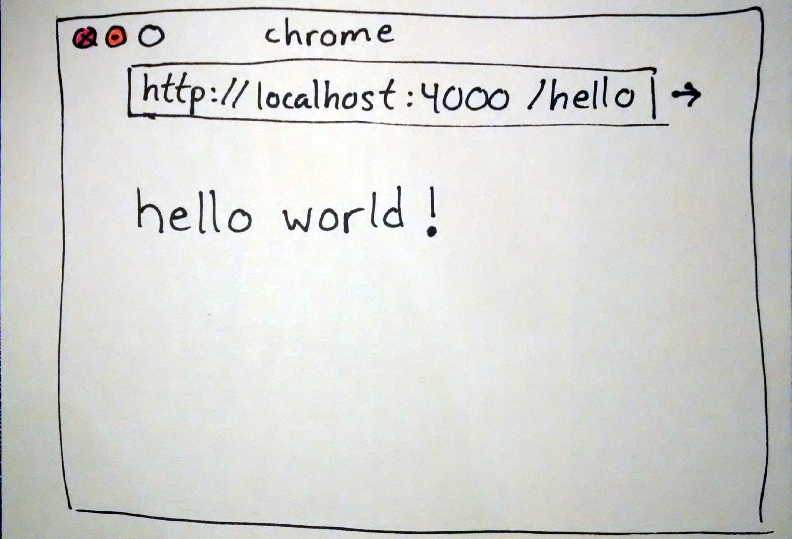 chrome
http://localhost:4000/hello
hello world!